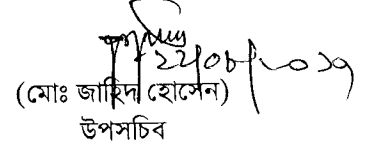 ২২/০৮/২০১৭
(মোঃ জাহিদ হোসেন)
উপসচিব